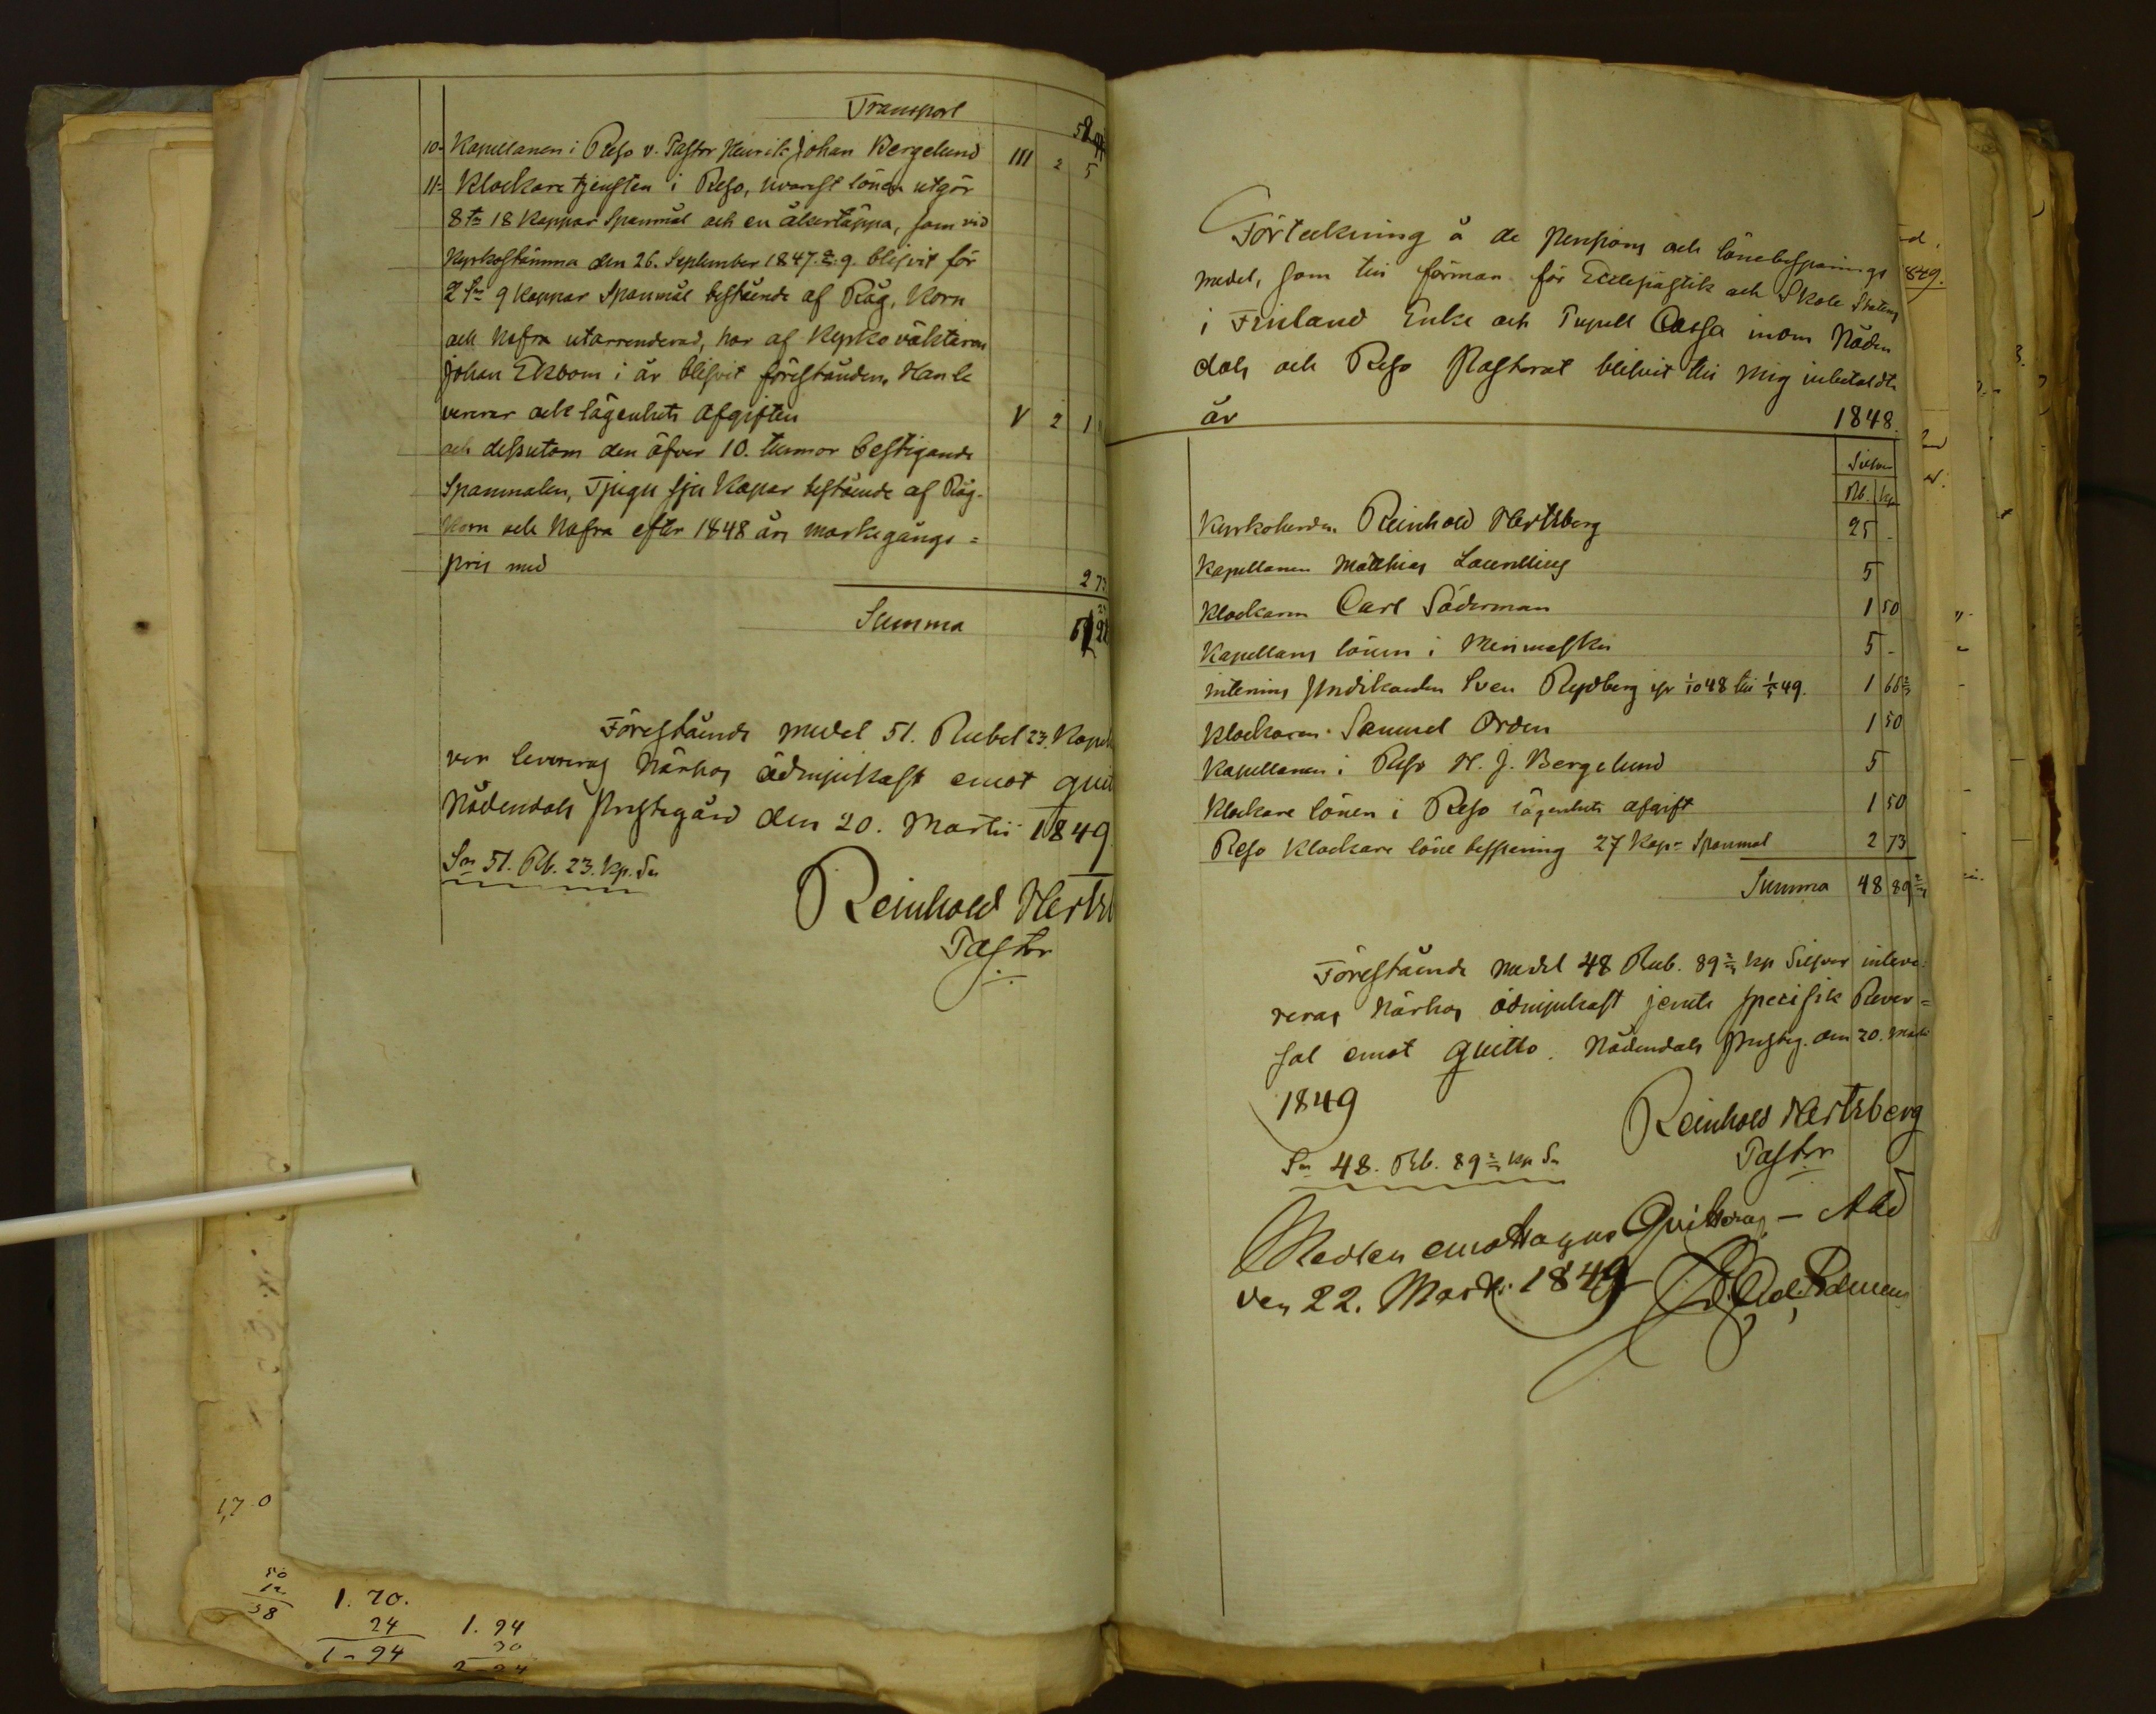 Transport
10. Kapellanen i Reso v. Pastor Henrik Johan Bergelund III 2 5
11. Klockare tjensten i Reso, hvarest lönen utgör
8 tr 18 Kappar Spanmål och en åkertäppa, som vid
Kyrkostämma den 26. September 1847. § 9. blifvit för
2 9 Kappar Spanmål bestående af Råg, Korn
och Hafra utarrenderad, har af Kyrkoväktaren
Johan Ekbom i år blifvit förestånden. Han le
vererar och lägenhets Afgiften V 2 1
och dessutom den öfver 10. tunnor bestigande
Spanmålen, Tjugu sju Kapar bestående af Råg-
Korn och Hafra efter 1848 års markegångs =
pris med 2 73
Summa
Förestående medel 51. Rubel 23. Kope
ver levereras härhos ödmjukast emot qui
Nådendals Prestegård den 20. Martii 1849
Sm 51. Rb. 23. Kp. Sr
Reinhold Hertz
Pastor
17.0
50
12
38
1. 70.
24
1-94
1. 94
30
2-24
Förteckning å de Pensions och lönebesparings
medel, som till förmån för Ecclesiastik och Skole Statens
i Finland Enke och Pupill Cassa inom Nåden
dals och Reso Pastorat blifvit till mig inbetaldte
år 1848.
Silfver
Rb. Kp
Kyrkoherden Reinhold Hertzberg 25 -
Kapellanen Matthias Laurellius 5
Klockaren Carl Söderman 1 50
Kapellans lönen i Merimasku 5 -
interims Predikanten Sven Rydberg fr 1/10 48 till 1/5 49. 1 66 2/3
Klockaren Samuel Orden 1 50
Kapellanen i Reso H. J. Bergelund 5
Klockare lönen i Reso lägenhets afgift 1 50
Reso Klockare löne bespening 27 Kapr Spanmål 2 73
Summa 48 89 2/3
Förestående medel 48 Rub. 89 2/3 kp Silfver inleve=
reras härhos ödmjukast jemte specifik Rever=
sal emot quitto. Nådendals Presteg. den 20. Marti
1849
Reinhold Hertzberg
Pastor
Sm 48. Rb. 89 2/3 kp Sr
Medlen emottagna Qvitteras - Åbo
den 22. Marti 1849